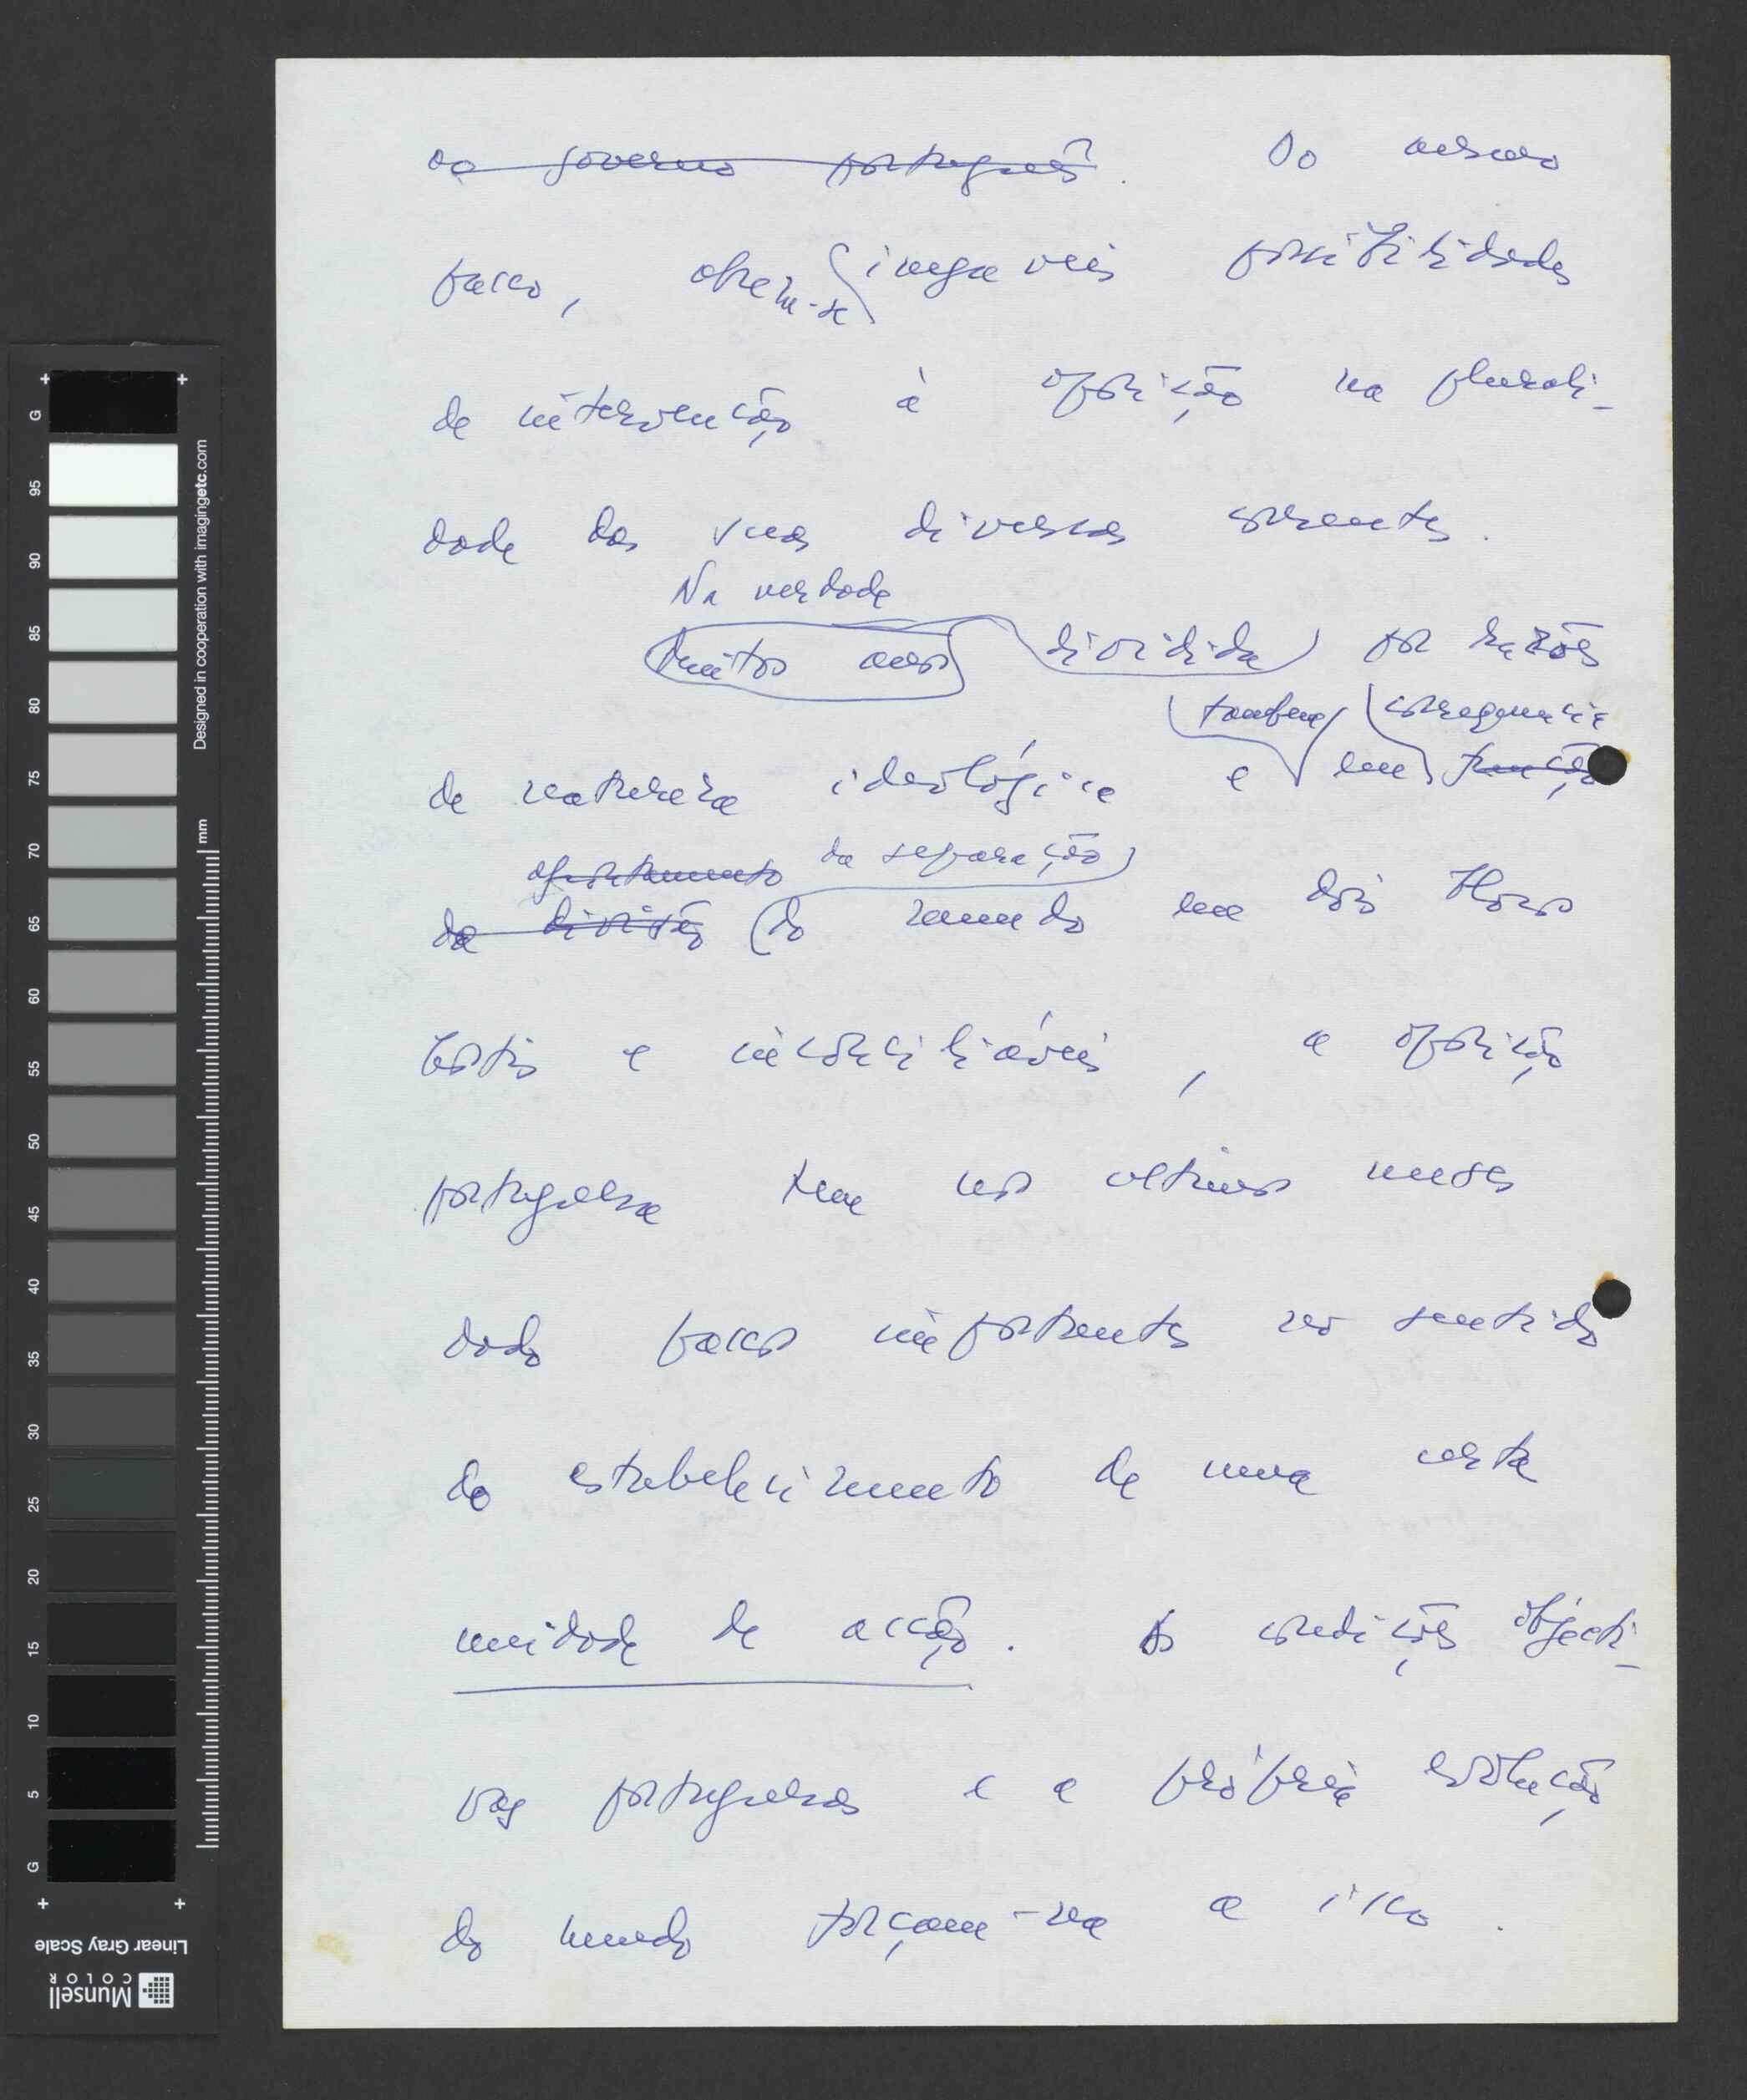 do governo português. Do mesmo
passo, abrem-se inegaveis possibilidades
de intervenção à oposição na plurali-
dade das suas diversas correntes.
Na verdade
Muitos anos dividida por razões
também consequencia
de natureza ideológica e em função
afrontamento da separação
da divisão do mundo em dois blocos
hostis e inconciliáveis, a oposição
portuguesa tem nos ultimos meses
dado passos importantes no sentido
do estabelecimento de uma certa
unidade de acção. As condições objecti-
vas portuguesas e a própria evolução
do mundo forçam-na a isso.
G
95
90
85
80
75
70
65
60
55
50
45
40
35
30
25
20
15
10
5
G
mm
Designed in cooperation with imagingetc.com
Linear Gray Scale
Munsell
COLOR